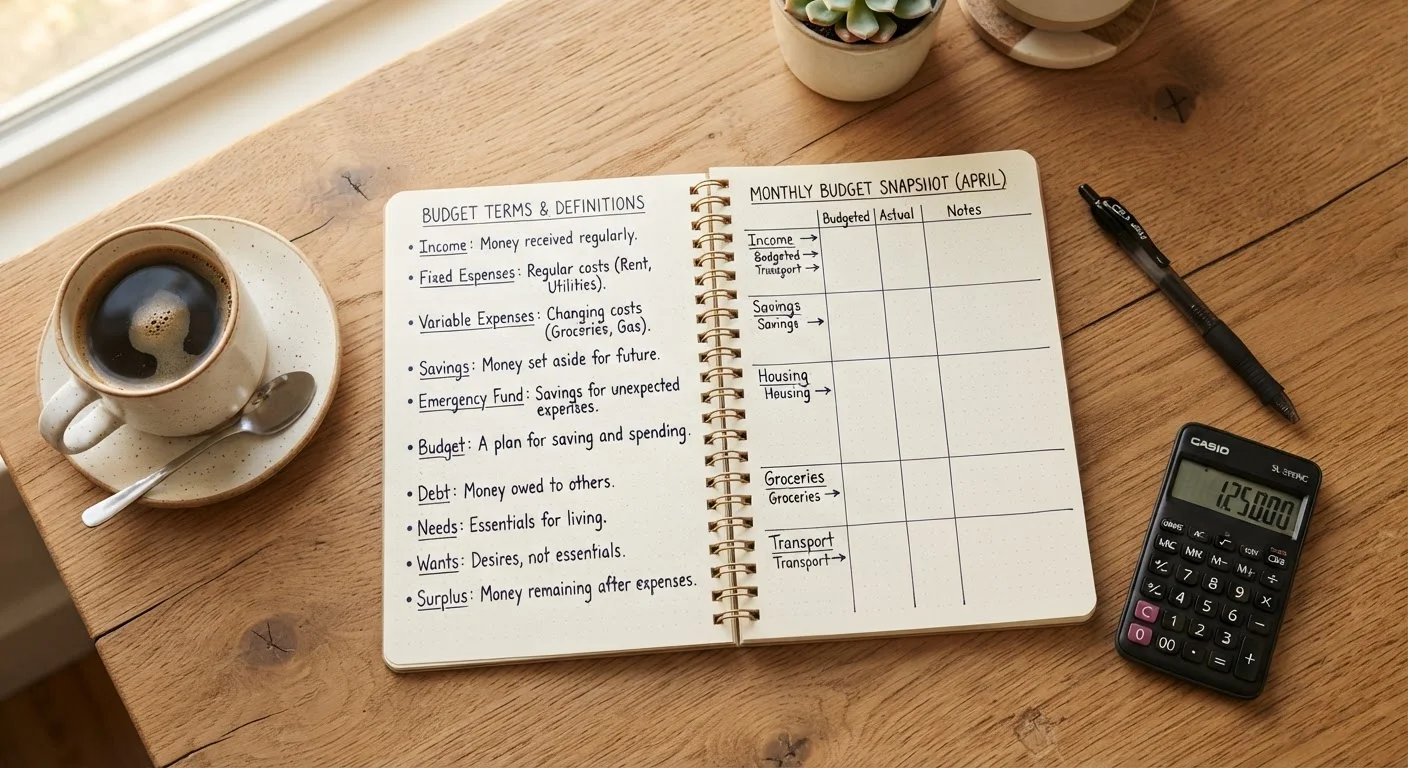 BUDGET TERMS & DEFINITIONS
• Income: Money received regularly.
• Fixed Espenses: Regular costs (Rent,
Utilities).
• Variable Expenses: Changing costs
(Groceries, Gas).
• Savings: Money set aside for future.
• Emergency Fund: Savings for unexpected
expenses.
• Budget: A plan for saving and spending.
• Debt: Money owed to others.
• Needs: Essentials for living.
• Wants: Desires, not essentials.
• Surplus: Money remaining after expenses.
MONTHLY BUDGET SNAPSHOT (APRIL)
Budgeted Astual Notes
Income →
Bodgeted →
→
Savings
Savings →
Housing
Heusing →
Groceries
Groceries →
Transport
Transport →
CASIO
MC M- M+ ÷
7 8 9 ×
4 5 6 −
C 1 2 3
0 00 · = +